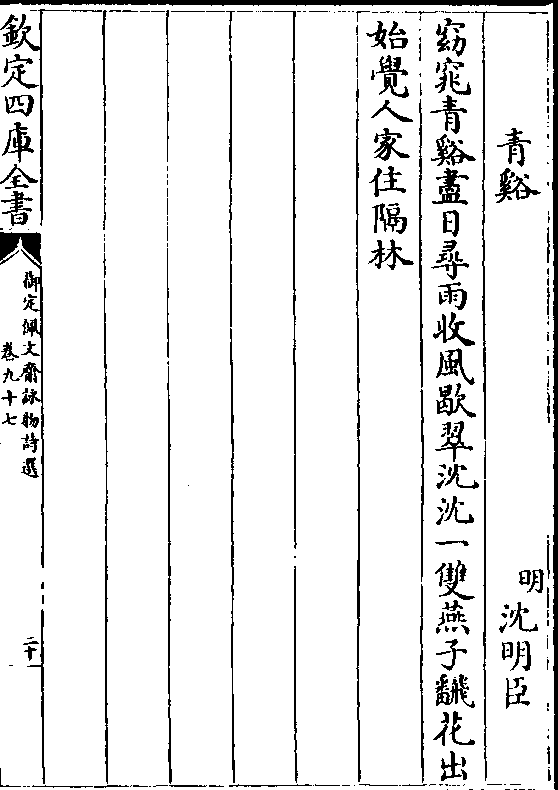 青谿
明沈明臣
窈窕青谿盡日尋雨收風歇翠沈沈一雙燕子飜花出
始覺人家住隔林
欽定四庫全書
御定佩文齋詠物詩選
卷九十七
二十一